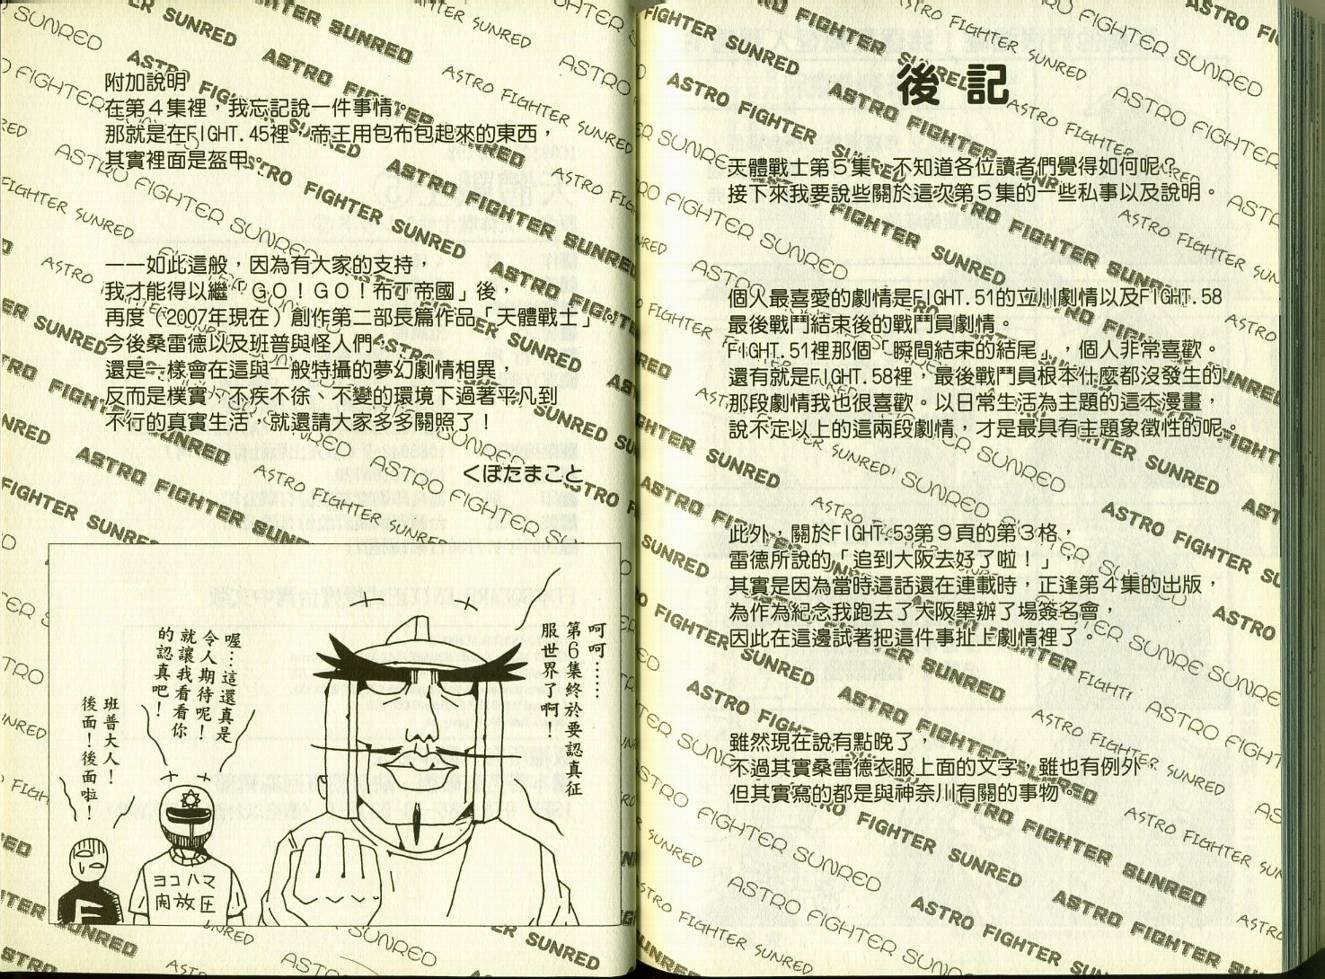 後記
天體戰士第５集，不知道各位讀者們覺得如何呢？
接下來我要說些關於這次第５集的一些私事以及說明。
個人最喜愛的劇情是FIGHT.51的立川劇情以及FIGHT.58
最後戰鬥結束後的戰鬥員劇情。
FIGHT.51裡那個「瞬間結束的結尾」，個人非常喜歡。
還有就是FIGHT.58裡，最後戰鬥員根本什麼都沒發生的
那段劇情我也很喜歡。以日常生活為主題的這本漫畫，
說不定以上的這兩段劇情，才是最具有主題象徵性的呢。
此外，關於FIGHT.53第９頁的第３格，
雷德所說的「追到大阪去好了啦！」，
其實是因為當時這話還在連載時，正逢第４集的出版，
為作為紀念我跑去了大阪舉辦了場簽名會，
因此在這邊試著把這件事扯上劇情裡了。
雖然現在說有點晚了
不過其實桑雷德衣服上面的文字，雖也有例外
但其實寫的都是與神奈川有關的事物
附加說明
在第４集裡，我忘記說一件事情。
那就是在FIGHT.45裡，帝王用包布包起來的東西，
其實裡面是盔甲。
——如此這般，因為有大家的支持，
我才能得以繼「ＧＯ！ＧＯ！布丁帝國」後，
再度（2007年現在）創作第二部長篇作品「天體戰士」。
今後桑雷德以及班普與怪人們，
還是一樣會在這與一般特攝的夢幻劇情相異，
反而是樸實、不疾不徐、不變的環境下過著平凡到
不行的真實生活，就還請大家多多關照了！
くぼたまこと
呵呵……
第６集終於要認真征
服世界了啊！
喔…這還真是
令人期待呢！
就讓我看看你
的認真吧！
班普大人！
後面！後面啦！
ヨコハマ
F
ASTRO FIGHTER SUNRED